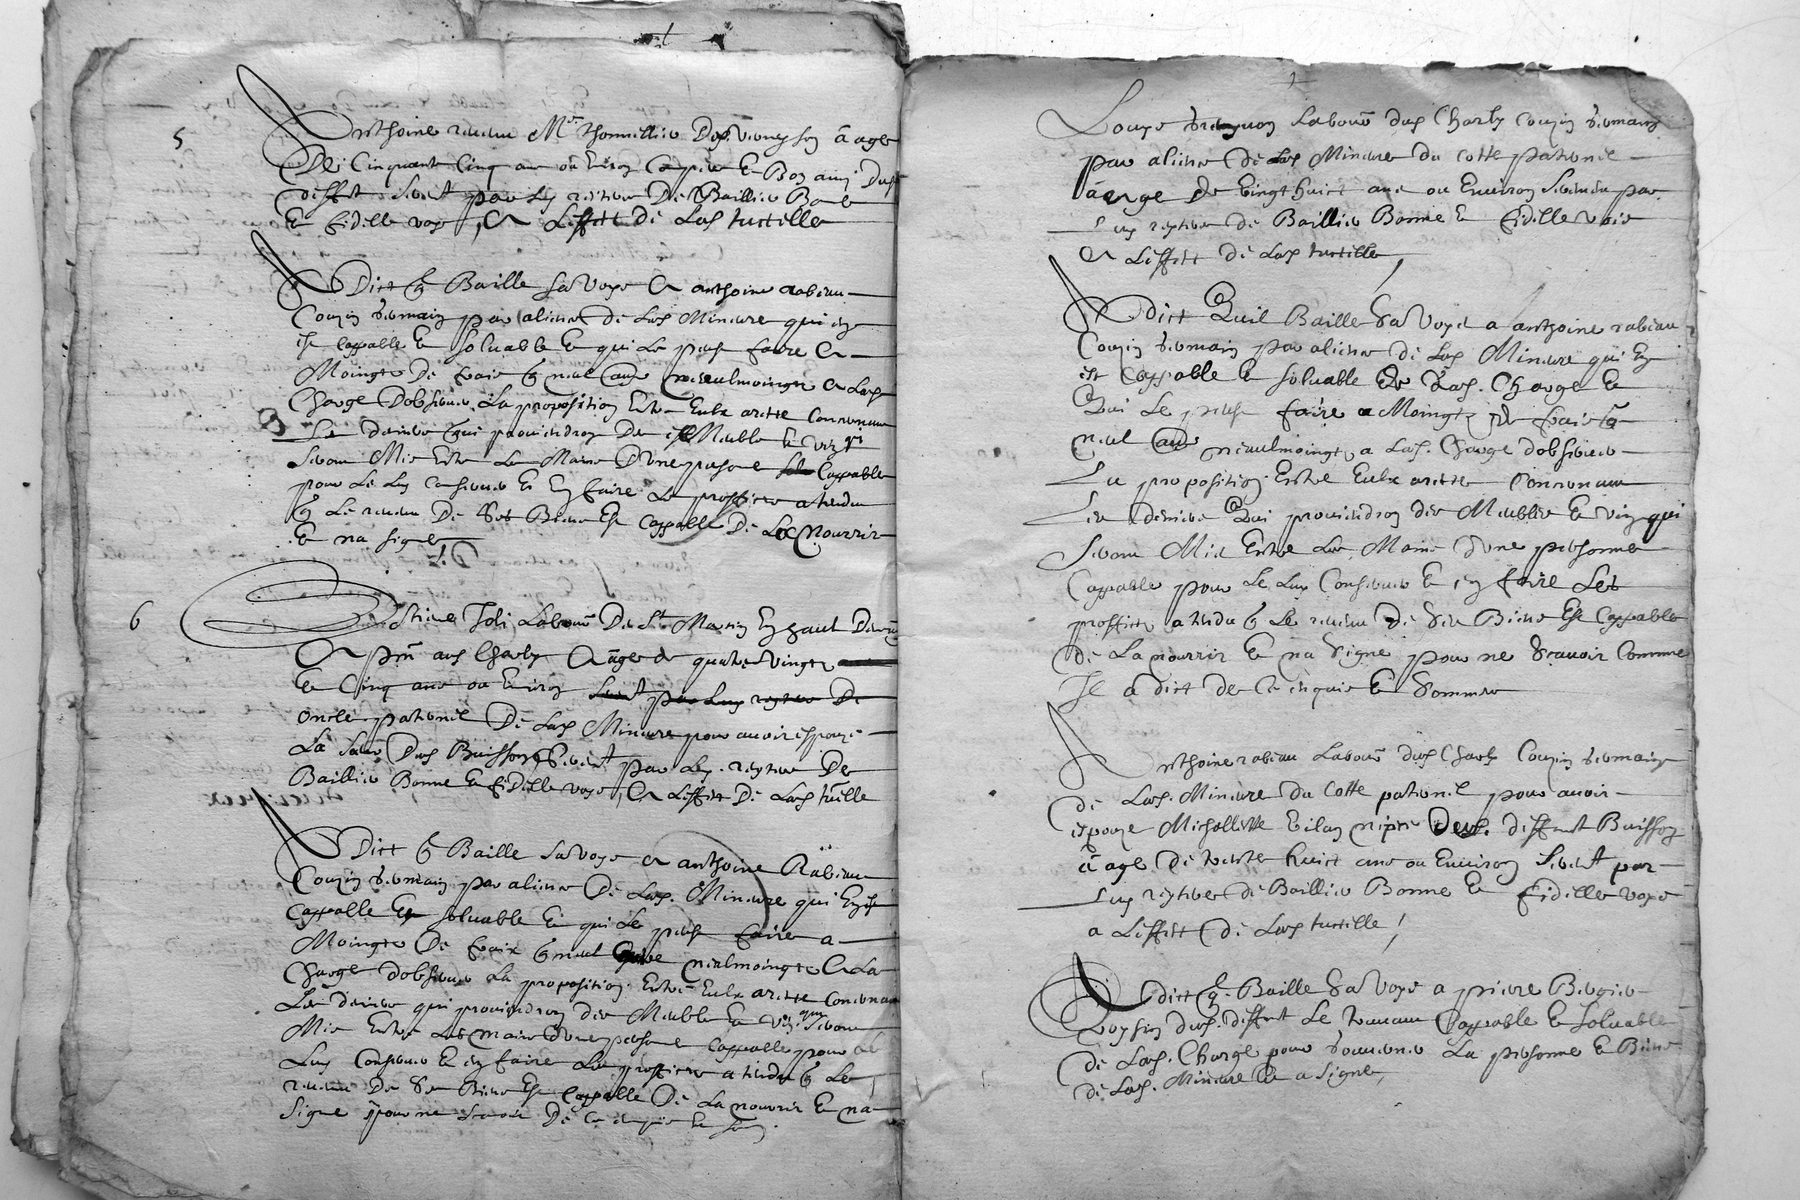 5
Anthoine raveau Me thonnellier Dud vernoy son aage
De Cinquante Cinq ans ou Environ Compere Et Bon amy Dud
deffunt Serment par luy reyteré De Baillier Bonne
Et fidelle voye, A L'effect de Lad tuttelle
A Dict q Baille sa voye A anthoine rabeau
Couzin germain par aliance de Lad Mineure qui en
est Cappable Et soluable Et qui Le peult faire A
Moingtz De frais q nul aultre neaulmoingtz A Lad
Charge D'observer La proposition Entre Eulx arestée Concernant
Les deniers qui proviendron Des Meubles Et vin qui
Seront Mis Entre Les Mains D'une personne Cappable
pour Le Luy Conserver Et En faire Le proffict atendu
q Le revenu De Ses Biens Est Cappable De La Nourrir
Et na signé
6
Estiene Joli Labour De St Martin En hault Demeurant
A pnt aud Charly Aagé de quatre vingtz
Et Cinq ans ou Environ
oncle paternel De Lad Mineure pour avoir espouzé
La sœur Dud Buisson Serment par Luy reyteré De
Baillier Bonne Et fidelle voye, A L'effect De Lad tutelle
A Dict q Baille sa voye A anthoine Rabeau
Couzin germain par aliance De Lad. Mineure qui En est
Cappable Et soluable Et qui Le peult faire a
Moingtz De fraix q nul aultre neulmoingtz A La
Charge d'observer La proposition Entre Eulx arestée Concernant
Les deniers qui proviendron des Meubles Et vin qui Seront
Mis Entre Les mains d'une personne Cappable pour Le
Luy Conserver Et En faire Le proffict atendu q Le
revenu De Ses Biens Est Cappable De La nourrir Et na
signé pour ne scavoir De ce enquis Et som.
Louys Labour dud Charly Couzin germain
par aliance de Lad Mineure du Cotté paternel
aagé de vingt huict ans ou Environ Serment par
Luy reyteré de Baillier Bonne Et fidelle voie
A L'effect de Lad tuttelle
A dict Quil Baille Sa Voye a anthoine rabeau
Couzin germain par aliance de Lad Mineure qui En
est Cappable Et soluable De Lad. Charge Et
Qui Le peult faire a Moingtz de frais q
nul aultre neaulmoingtz a Lad. Charge d'observer
La proposition Entre Eulx arestée Concernant
Les deniers Qui proviendron des Meubles Et vin qui
Seront Mis Entre Les Mains d'une personne
Cappable pour Le Luy Conserver Et En faire Les
proffictz atendu q Le revenu de Ses Biens Est Cappable
de La nourrir Et na Signé pour ne Scavoir Comme
Il a dict de ce enquis Et Sommé
Anthoine rabeau Labour dud Charly Couzin germain
de Lad. Mineure du Cotté paternel pour avoir
espouzé Michellette niepce dud. deffunt Buisson
aagé de trente huict ans ou Environ Serment par
Luy reyteré de Baillier Bonne Et fidelle voye
a L'effect de Lad tuttelle
A dict q Baille Sa Voye a pierre
Voysin dud. deffunt Le tenant Cappable Et soluable
de Lad. Charge pour gouverner La personne Et Biens
de Lad. Mineure Et a Signé